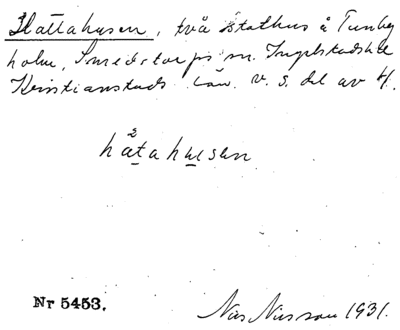 Hattahusen, två stathus å Tunby
holm, Smedstorps sn. Ingelstads hd
Kristianstads län. v. S. del av H.
2
håtahusen
Nr 5453.
Nils Nilsson 1931.